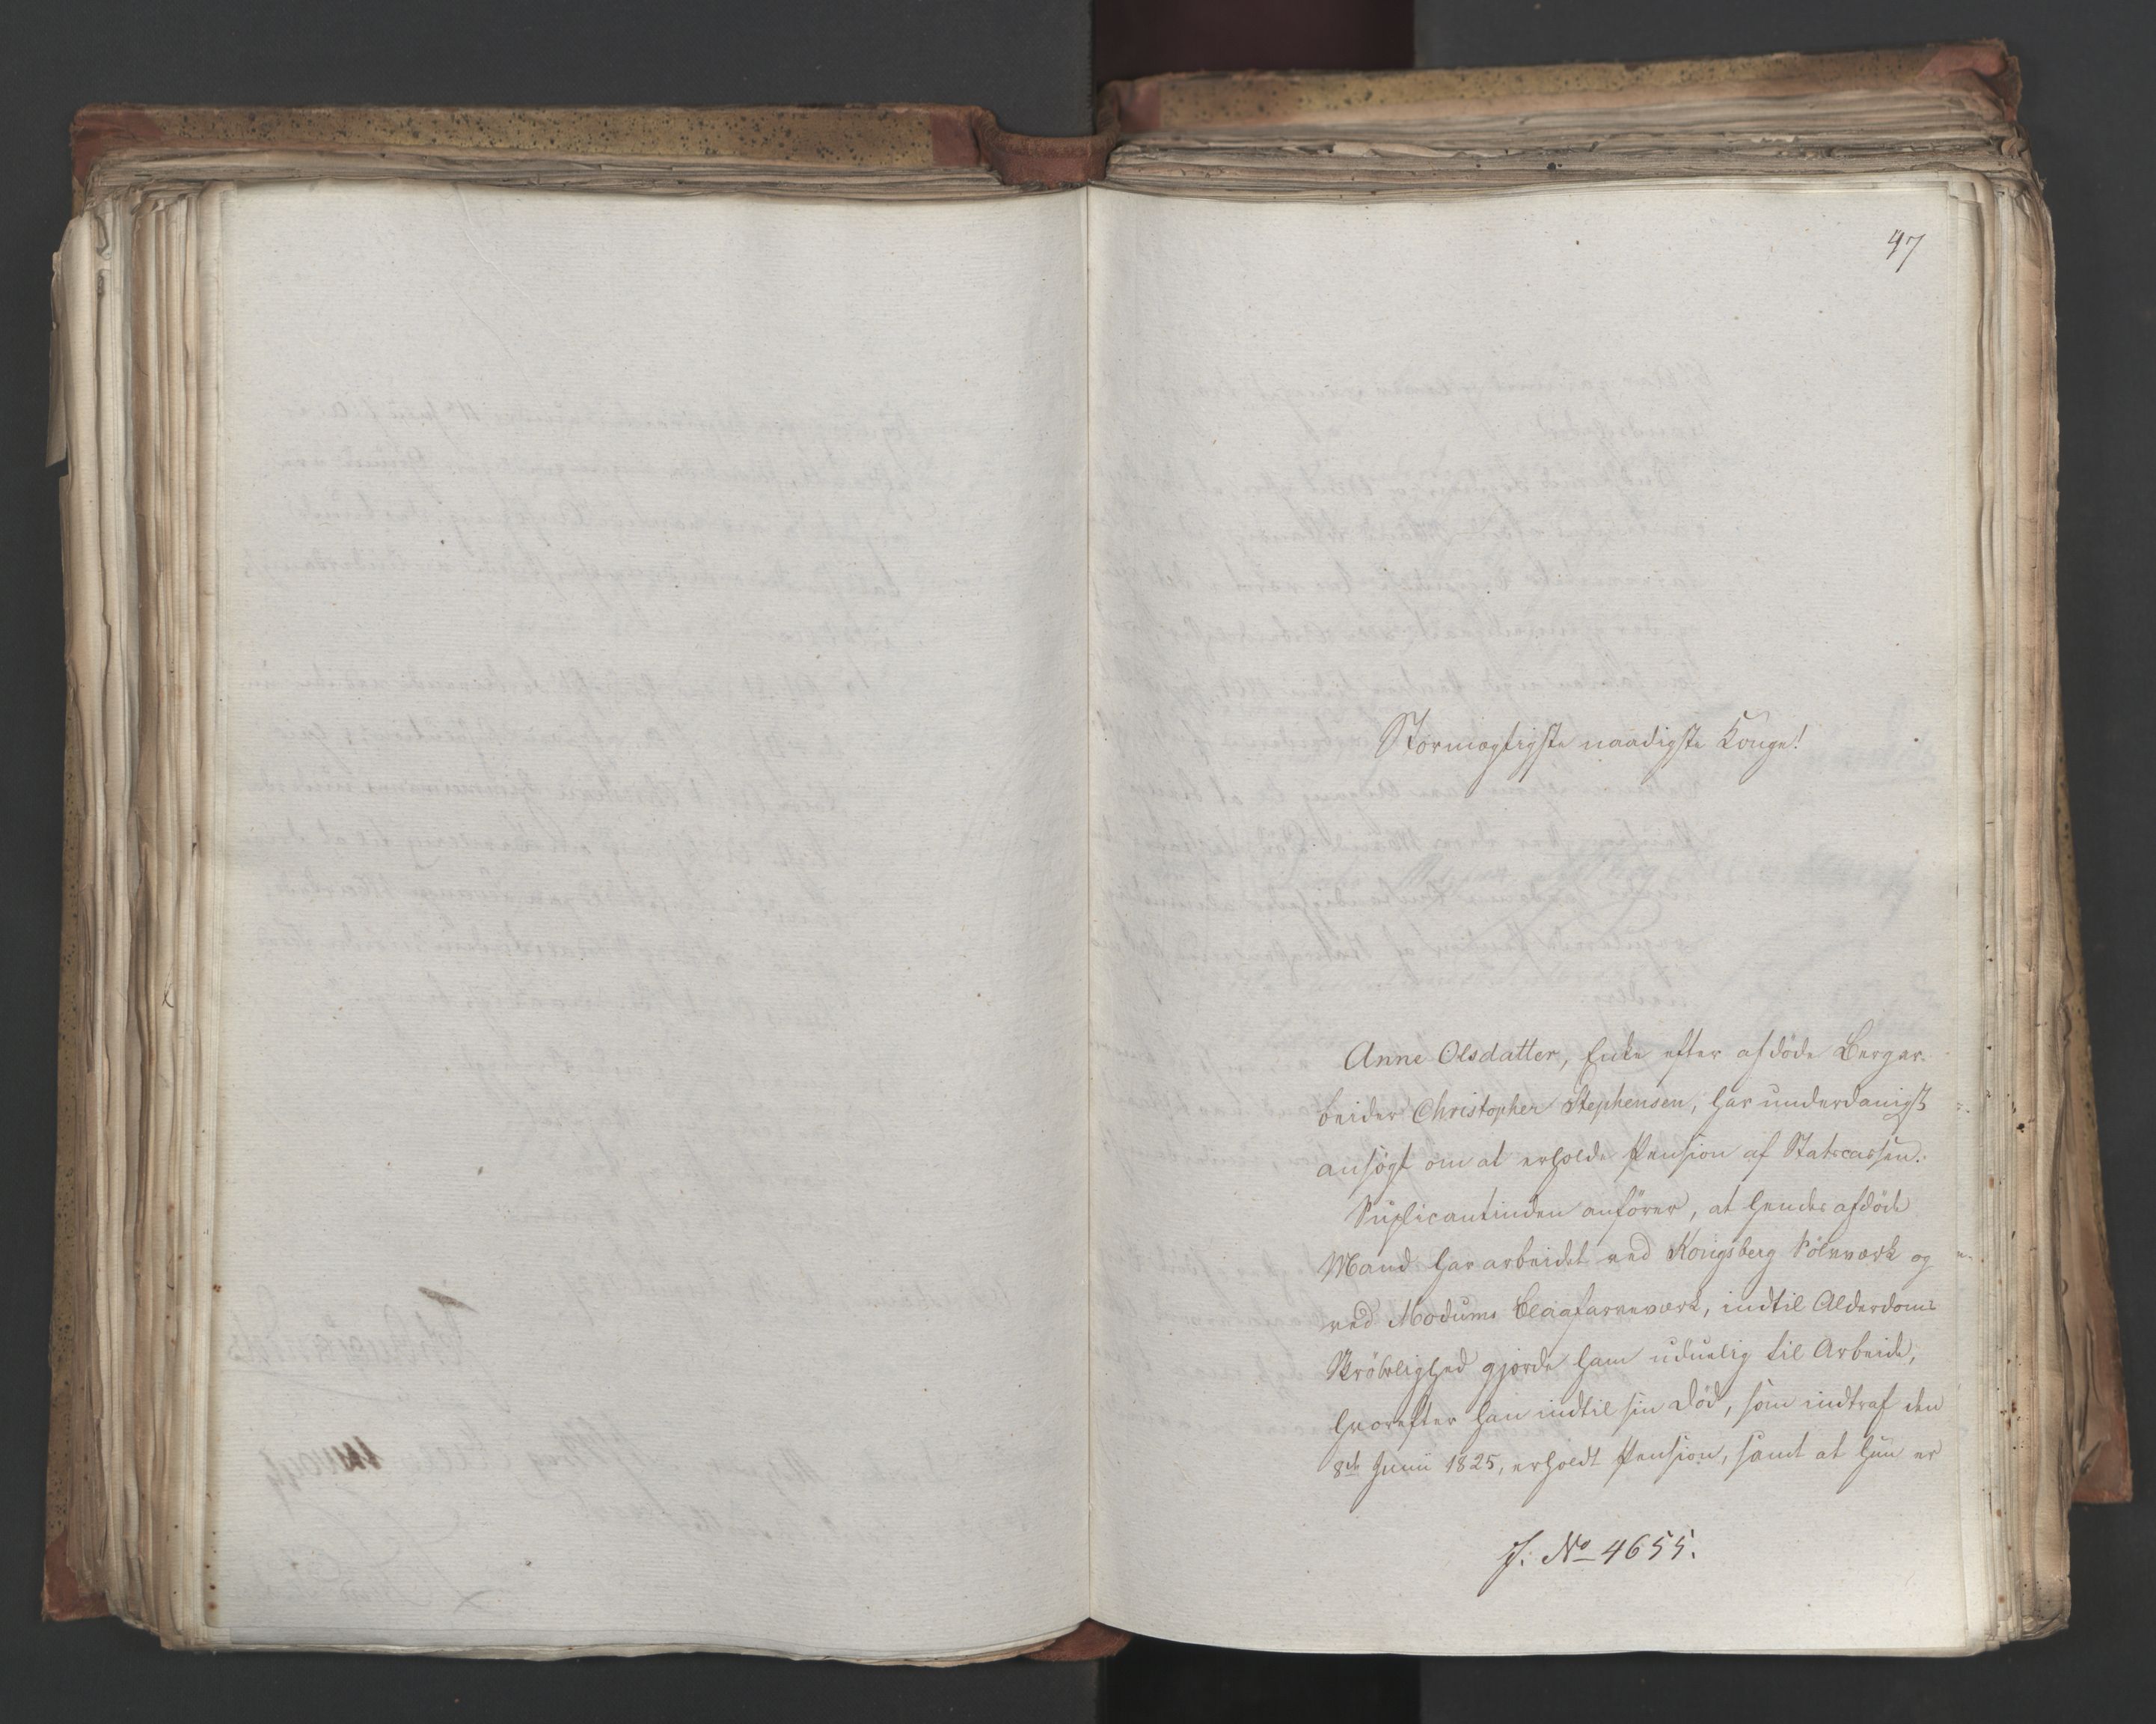 47
Stormægtigste naadigste Konge!
Anne Olsdatter, Enke efter afdöde Bergar-
beider Christopher Stephensen, har underdanigst
ansögt om at erholde Pension af Statscassen.
Suplicantinden anförer, at hendes afdöde
Mand har arbeidet ved Kongsberg Sölvværk og
ved Modums Blaafarveværk, indtil Alderdoms
Skröbelighed gjorde ham uduelig til Arbeide,
hvorefter han indtil sin Död, som indtraf den
8de Junii 1825, erholdt Pension, samt at hun er
J. No 4655.